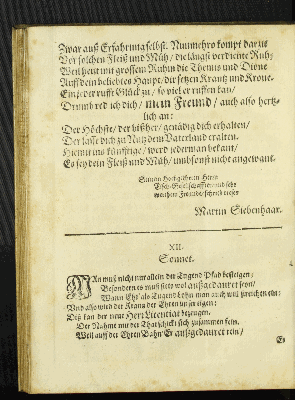 Zwar auß Erfahrung selbst. Nunmehro kompt daraus
Vor solchen Fleiß und Müh / die längst verdiente Ruh;
Weil heut mit grossem Ruhm die Themis und Dione
Auff dein beliebtes Haupt / dir setzen Krantz und Krone.
Ein jeder rufft Glück zu / so viel er ruffen kan /
Drumb red ich dich / mein Freund / auch also hertz-
lich an:
Der Höchste / der bißher / genädig dich erhalten /
Der lasse dich zu Nutz dem Vaterland eralten.
Hiemit ins künfftige / werd jederman bekant /
Es sey dein Fleiß und Müh / umbsonst nicht angewant.
Seinem Hochgeehrten Herrn
Tisch-Gesellschaffter und sehr
werthen Freunde / schrieb dieses
Martin Siebenhaar.
XII.
Sonnet.
MAn muß nicht nur allein der Tugend Pfad besteigen /
Besondern es muß stets wol außgedauret seyn /
Wann Ehr' als Tugend-Lohn man auch wil
Und also wird der Krantz der Ehren unser eigen:
Diß kan der neue Herr Licentiat bezeugen,
Der Nahme mit der That schickt sich zusammen fein.
Weil auff der Ehren Bahn Er außgedauret rein /
Es